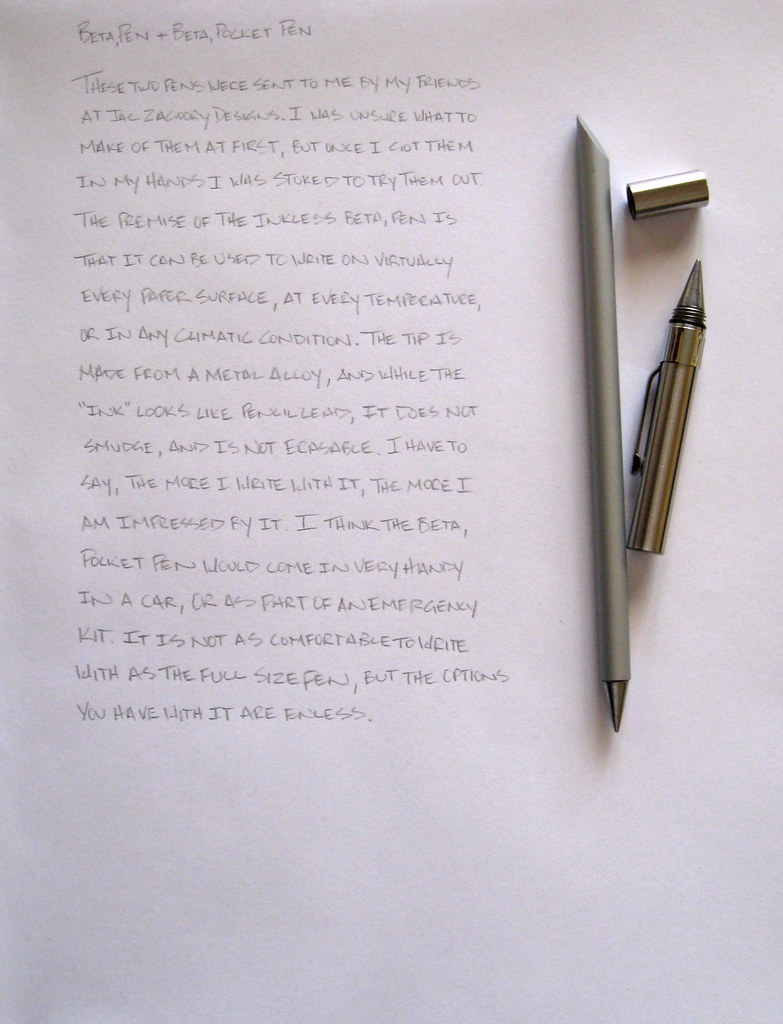 BETA, PEN + BETA, POCKET PEN
THESE TWO PENS WERE SENT TO ME BY MY FRIENDS
AT JAC ZAGOORY DESIGNS. I WAS UNSURE WHAT TO
MAKE OF THEM AT FIRST, BUT ONCE I GOT THEM
IN MY HANDS I WAS STOKED TO TRY THEM OUT.
THE PREMISE OF THE INKLESS BETA, PEN IS
THAT IT CAN BE USED TO WRITE ON VIRTUALLY
EVERY PAPER SURFACE, AT EVERY TEMPERATURE,
OR IN ANY CLIMATIC CONDITION. THE TIP IS
MADE FROM A METAL ALLOY, AND WHILE THE
"INK" LOOKS LIKE PENCIL LEAD, IT DOES NOT
SMUDGE, AND IS NOT ERASABLE. I HAVE TO
SAY, THE MORE I WRITE WITH IT, THE MORE I
AM IMPRESSED BY IT. I THINK THE BETA,
POCKET PEN WOULD COME IN VERY HANDY
IN A CAR, OR AS PART OF AN EMERGENCY
KIT. IT IS NOT AS COMFORTABLE TO WRITE
WITH AS THE FULL SIZE PEN, BUT THE OPTIONS
YOU HAVE WITH IT ARE ENLESS.